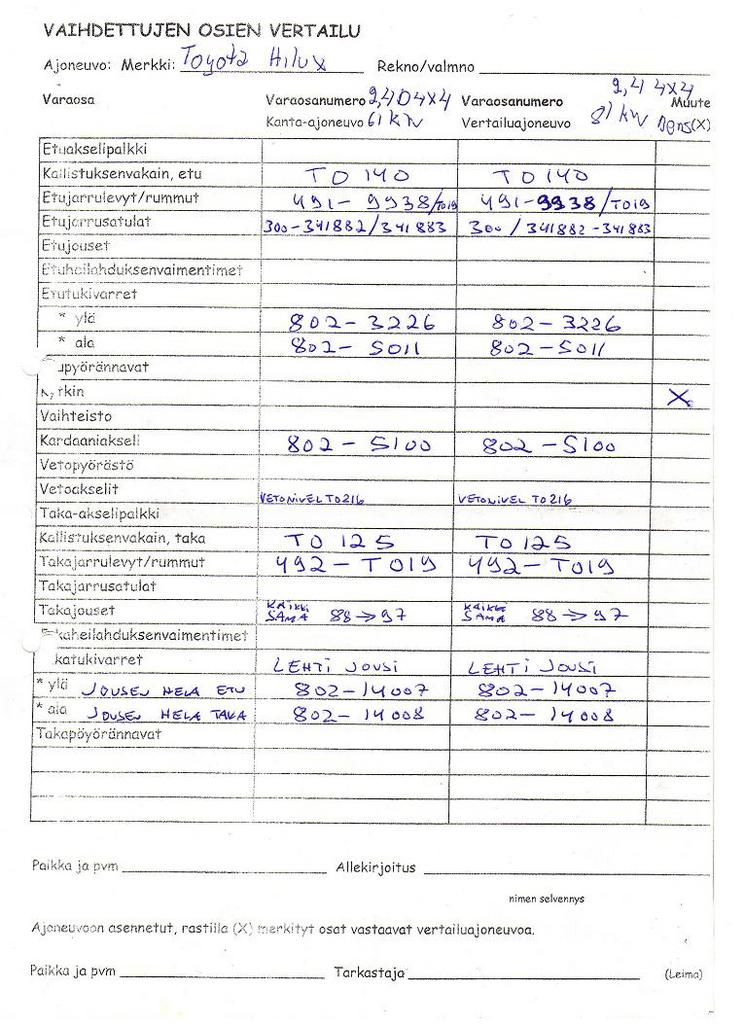 VAIHDETTUJEN OSIEN VERTAILU
Ajoneuvo: Merkki: Toyota Hilux Rekno/valmno
Varaosa Varaosanumero 2,4D 4x4 Varaosanumero 2,4 4x4 Muute
Kanta-ajoneuvo 61 kW Vertailuajoneuvo 81 kW Bens (X)
Etuakselipalkki
Kallistuksenvakain, etu TO 140 TO 140
Etujarrulevyt/rummut 491-9938/TO19 491-9938/TO19
Etujarrusatulat 300-341882/341883 300/341882-341883
Etujouset
Etuheilahduksenvaimentimet
Etutukivarret
* ylä 802-3226 802-3226
* ala 802-5011 802-5011
upyörännavat
rkin X
Vaihteisto
Kardaaniakseli 802-5100 802-5100
Vetopyörästö
Vetoakselit VETONIVEL TO216 VETONIVEL TO216
Taka-akselipalkki
Kallistuksenvakain, taka TO 125 TO 125
Takajarrulevyt/rummut 492-TO19 492-TO19
Takajarrusatulat
Takajouset KAIKKI SAMA 88→97 KAIKKI SAMA 88→97
kaheilahduksenvaimentimet
katukivarret LEHTI JOUSI LEHTI JOUSI
* ylä JOUSEN HELA ETU 802-14007 802-14007
* ala JOUSEN HELA TAKA 802-14008 802-14008
Takapöyrännavat
Paikka ja pvm Allekirjoitus
nimen selvennys
Ajoneuvoon asennetut, rastilla (X) merkityt osat vastaavat vertailuajoneuvoa.
Paikka ja pvm Tarkastaja (Leima)